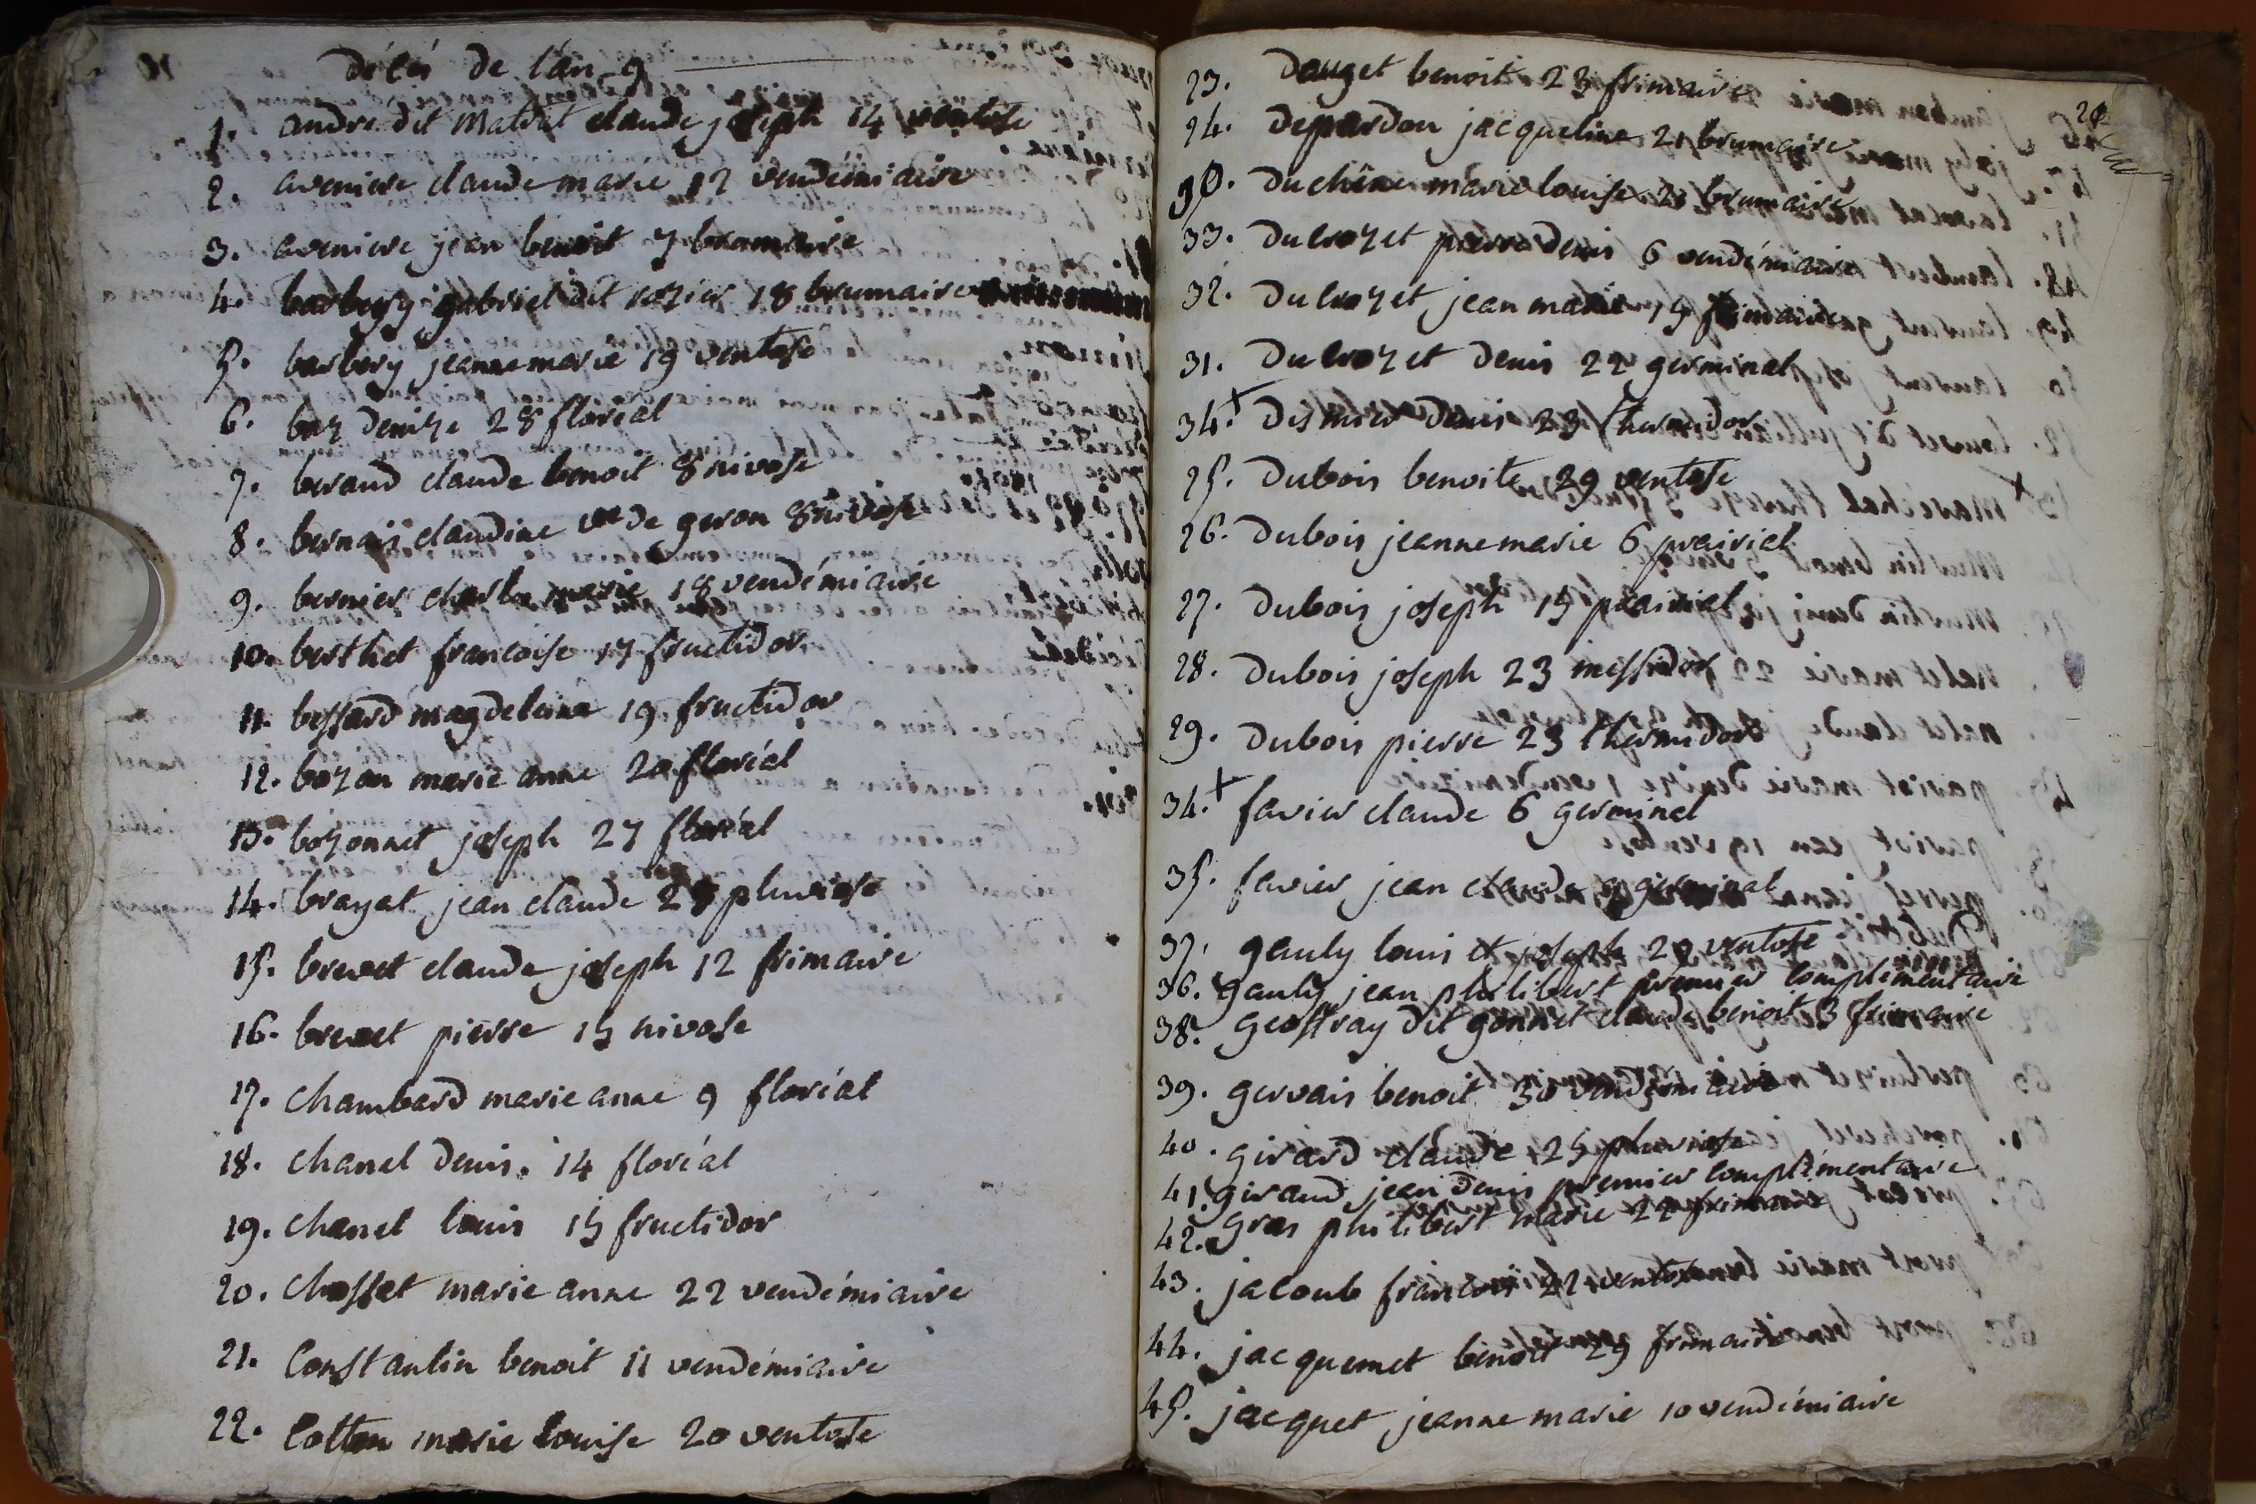 décés de l'an 9
1. andré dit Matrat claude joseph 14 ventose
2. aveniere claude marie 12 vendémiaire
3. aveniere jean benoit 7 brumaire
4. barbery gabriel dit rozier 18 brumaire
5. barbery jeanne marie 19 ventose
6. baz denize 28 floréal
7. beraud claude benoit 8 nivose
8. bernais claudine ve de geron 8 nivose
9. bernier charle marie 18 vendémiaire
10. berthet francoise 17 fructidor
11. bessard magdeleine 19 fructidor
12. bozon marie anne 20 floréal
13. bozonnet joseph 27 floréal
14. brayat jean claude 28 pluviose
15. brevet claude joseph 12 frimaire
16. brevet pierre 15 nivose
17. chambard marie anne 9 floréal
18. chanel denis. 14 floréal
19. chanel louis 15 fructidor
20. chossat marie anne 22 vendémiaire
21. Constantin benoit 11 vendémiaire
22. Cotton marie louise 20 ventose
20
23. Dauget benoit 23 frimaire
24. Depardon jacqueline 21 brumaire
30. Duchêne marie louise 21 brumaire
33. Ducrozet pierre denis 6 vendémiaire
32. Ducrozet jean marie 15 frimaire
31. Ducrozet denis 22 germinal
34. + Desmier denis 23 thermidor
25. Dubois benoite 29 ventose
26. Dubois jeanne marie 6 prairial
27. Dubois joseph 15 prairial
28. Dubois joseph 23 messidor
29. Dubois pierre 23 thermidor
34. + favier claude 6 germinal
35. favier jean claude 9 germinal
37. gauly louis joseph 29 ventose
36. gauly jean philibert premier complementaire
38. Geoffray dit gonnet claude benoit 3 frimaire
39. gervais benoit 30 vendémiaire
40. girard claude 25 pluviose
41. giraud jean denis premier complémentaire
42. gras philibert marie 22 frimaire
43. jacoub francois 22 ventose
44. jacquemet benoit 29 frimaire
45. jacquet jeanne marie 10 vendémiaire